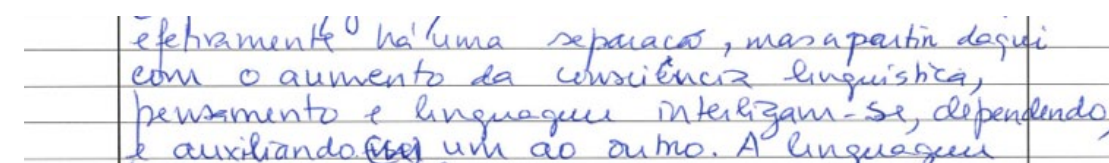 efetivamente há uma separação, mas a partir daqui
com o aumento da consciência linguística,
pensamento e linguagem interligam-se, dependendo
e auxiliando um ao outro. A linguagem